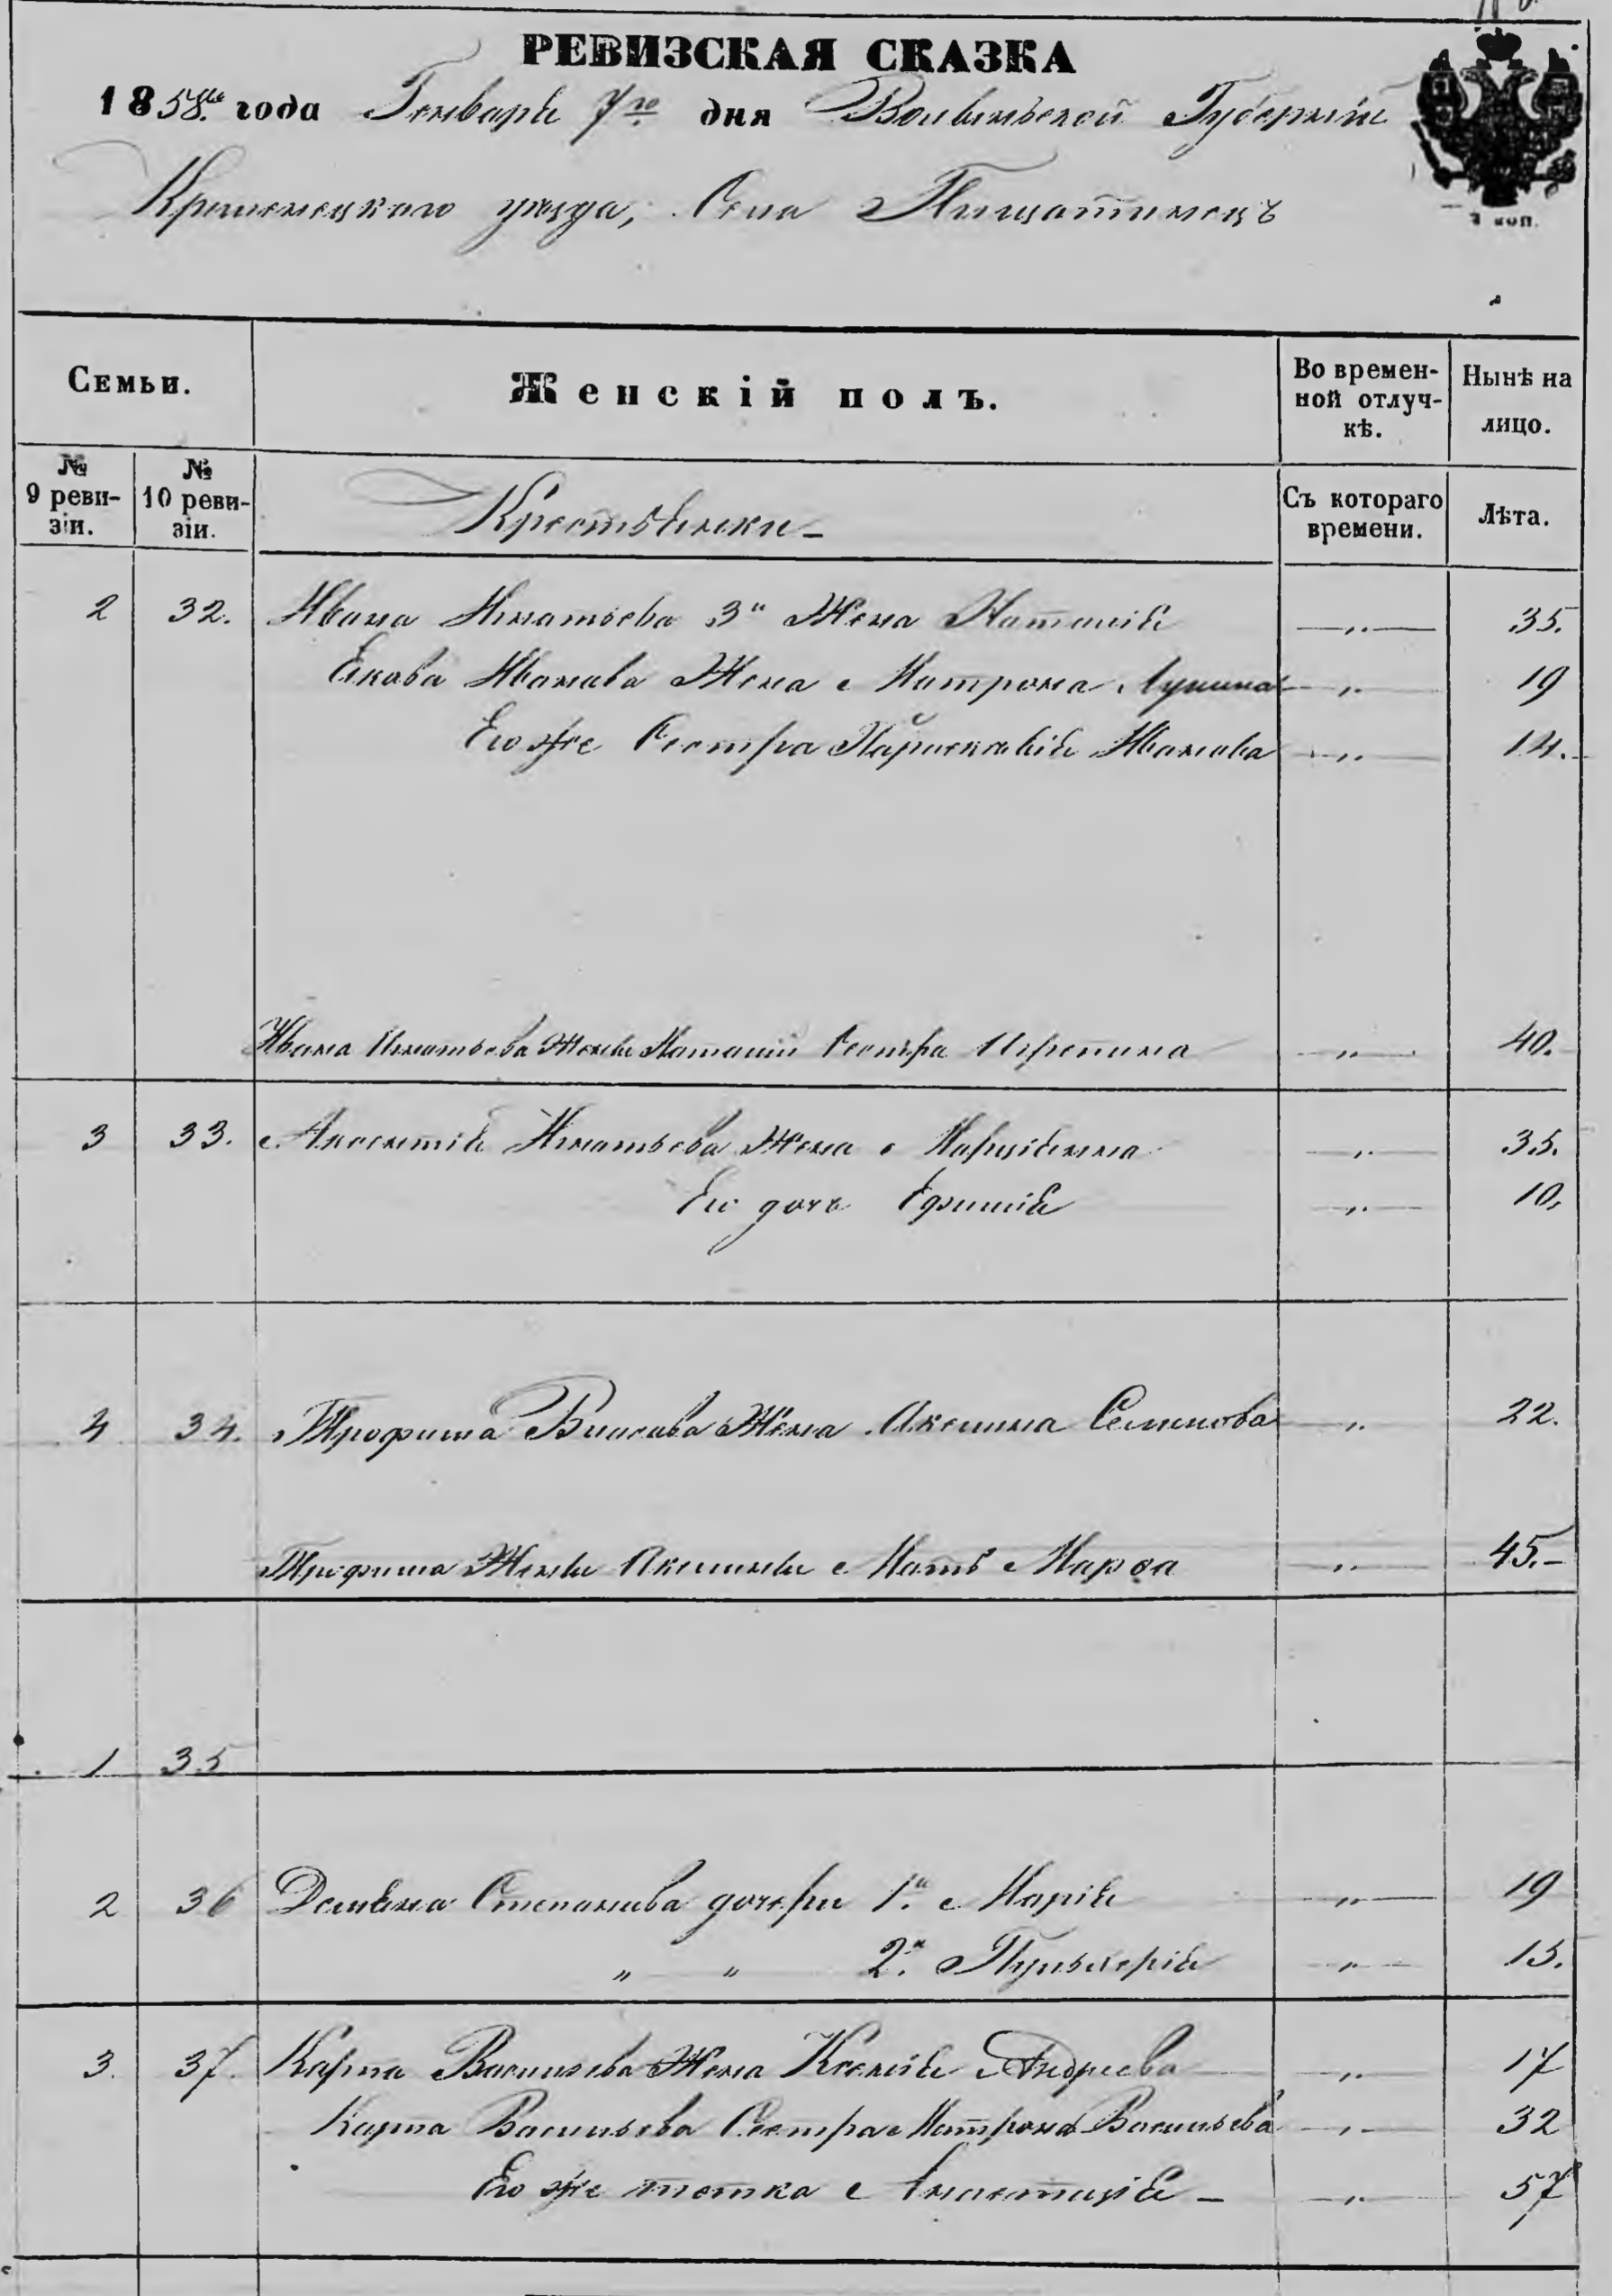 РЕВИЗСКАЯ СКАЗКА
1858го года Генваря 7го дня Волынской Губерніи
Кременецкаго уезда, Села Пищатинецъ
4 коп.
Семьи.
Женскій полъ.
Во времен-
ной отлуч-
кѣ.
Нынѣ на
лицо.
№
9 реви-
зіи.
№
10 реви-
зіи.
Крестьянки
Съ котораго
времени.
Лѣта.
2 32. Ивана Игнатьева 3я Жена Наталія —„— 35.
Якова Иванова Жена Матрона Лукина —„— 19
Его же Сестра Парисковія Иванова —„— 14.
Ивана Игнатьева Жены Наталіи Сестра —„— 40.
3 33. Аксентія Игнатьева Жена Марціянна —„— 35.
Его дочь Ефимія —„— 10.
4 34. Трофима Власова Жена Аксинья Семенова —„— 22.
Трофима Жены Аксиньи Мать Марѳа —„— 45.
1 35
2 36 Демьяна Степанова дочери 1я Марія —„— 19
„ „ 2я Пульхерія —„— 15.
3. 37. Карпа Васильева Жена Ксенія Андреева —„— 17
Карпа Васильева Сестра Матрона Васильева —„— 32
Его же тетка Анастазія —„— 57